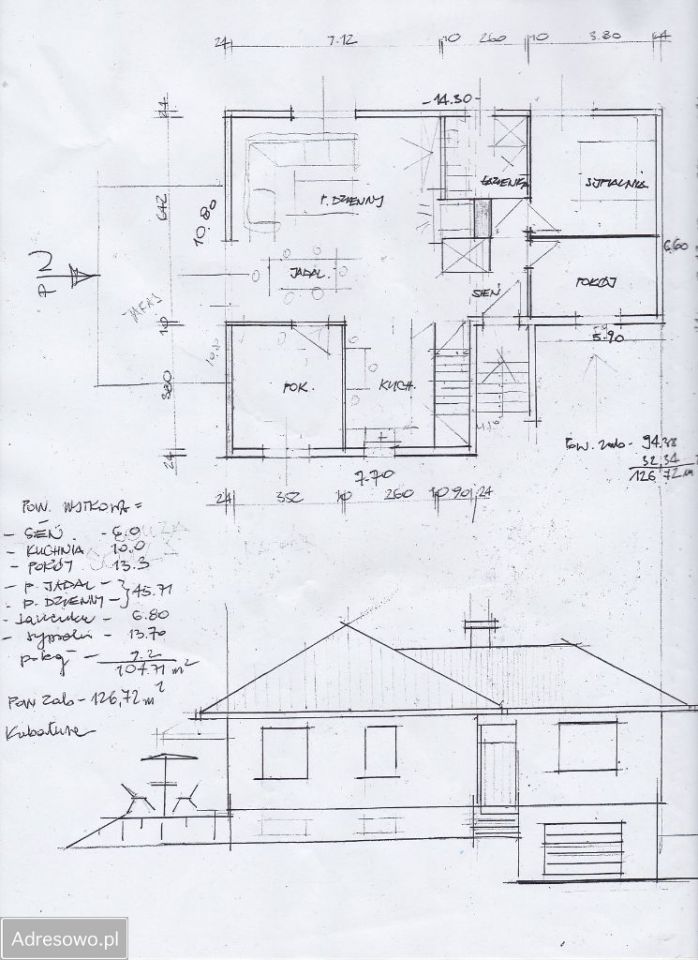 24 7.12 10 260 10 3.80 24
- 14.30 -
24
642
10.80
P. DZIENNY
ŁAZIENKA
SYPIALNIA
JADAL.
SIEŃ
POKÓJ
6.60
TARAS
10
380
24
POK.
KUCH.
5.90
7.70
24 352 10 260 10 90 24
POW. ZAB - 94.38
32.34
126.72 m
POW. UŻYTKOWA =
- SIEŃ - 6.0
- KUCHNIA 10.0
- POKÓJ 13.3
- P. JADAL -
- P. DZIENNY - } 45.71
- Łazienka - 6.80
- sypialnia - 13.70
pokój - 7.2
107.71 m²
POW ZAB - 126,72 m²
Kubatura
Adresowo.pl